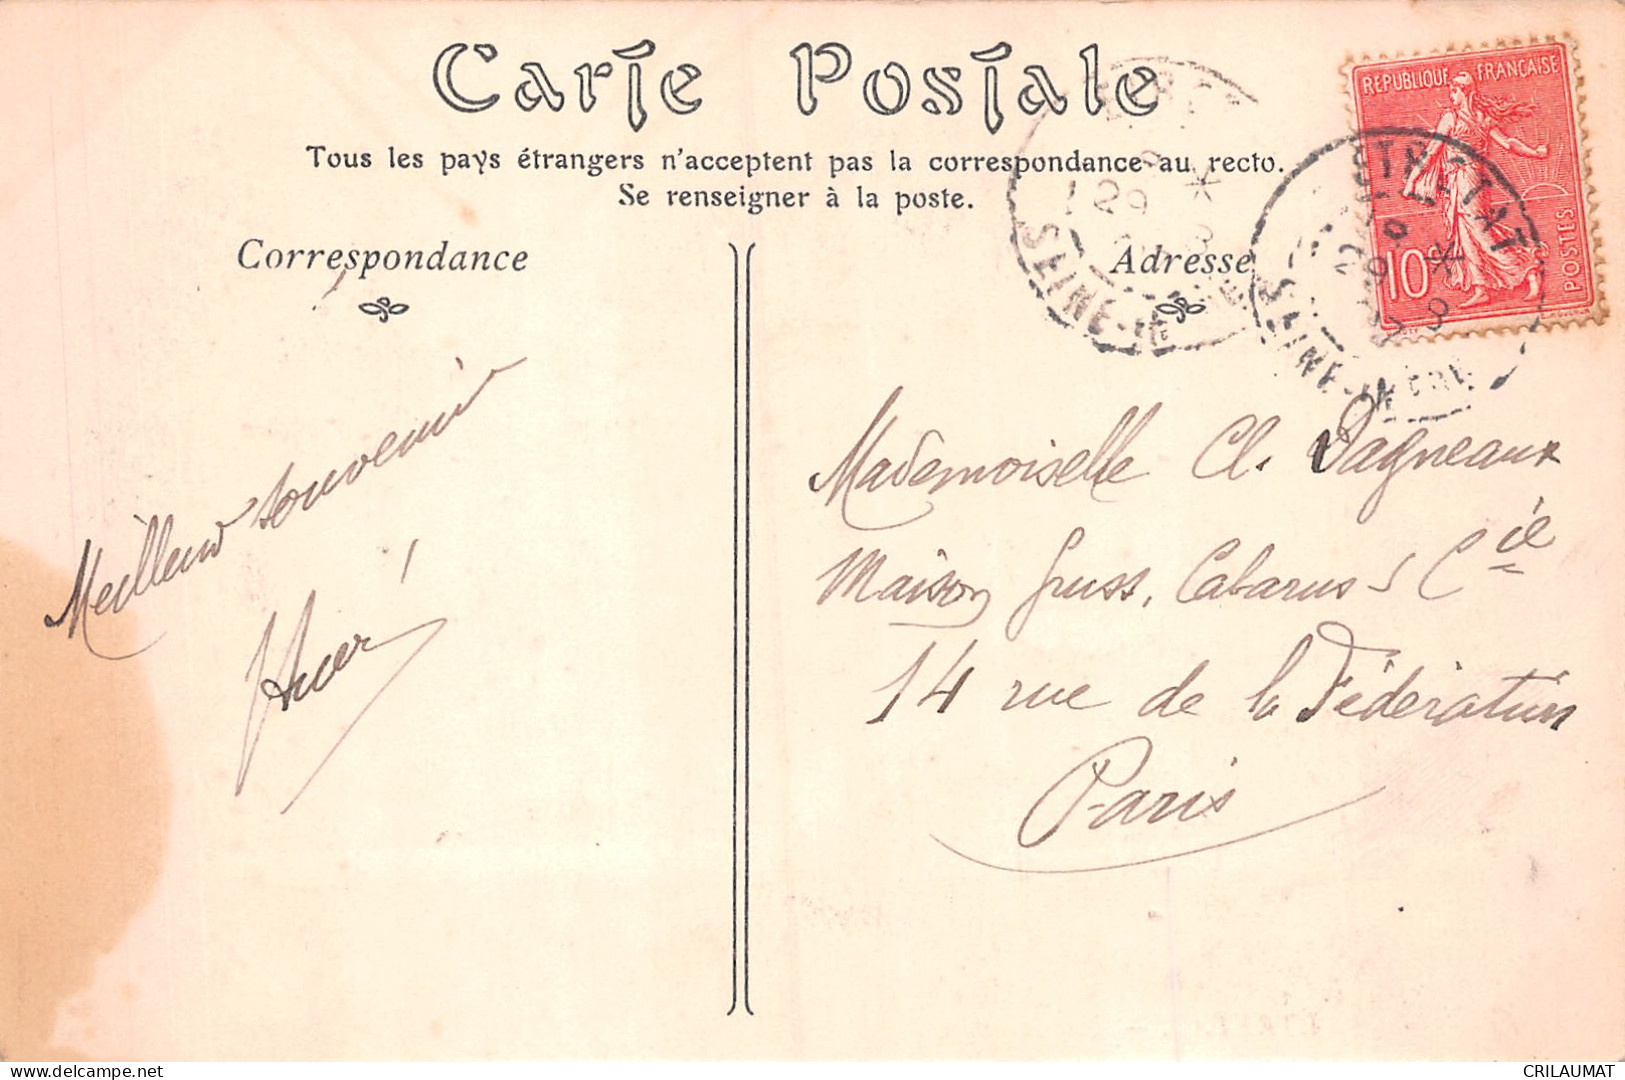 Carte Postale
Tous les pays étrangers n'acceptent pas la correspondance au recto.
Se renseigner à la poste.
Correspondance
Adresse
REPUBLIQUE FRANÇAISE
POSTES
10
ETRETAT
SEINE-INFRE
SEINE-IN
Meilleur souvenir
Mademoiselle Cl. Dagneaux
Maison Gruss, Cabarus & Cie
14 rue de la Fédération
Paris
delcampe.net
CRILAUMAT